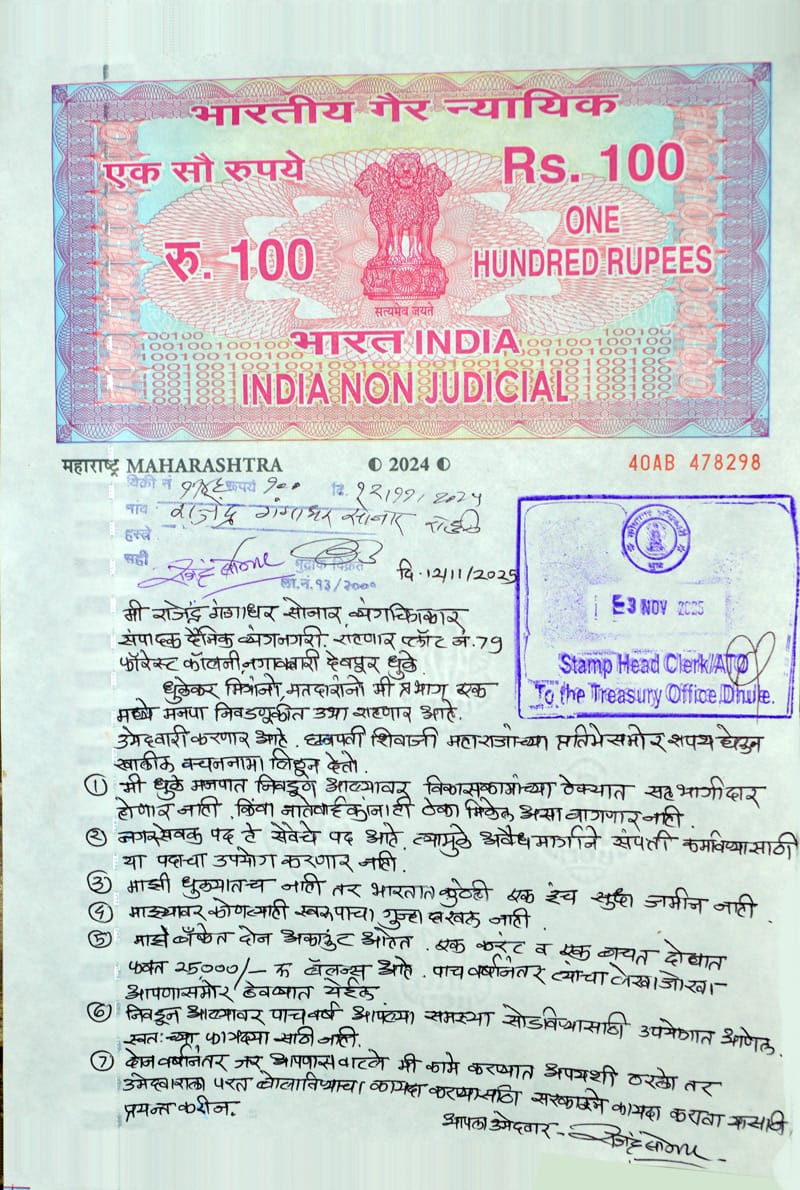 भारतीय गैर न्यायिक
एक सौ रुपये
Rs. 100
रु. 100
ONE
HUNDRED RUPEES
सत्यमेव जयते
भारत INDIA
INDIA NON JUDICIAL
महाराष्ट्र MAHARASHTRA
2024
40AB 478298
विक्री नं रुपये १०० दि. १२/११/२०२५
नांव राजेंद्र गंगाधर सोनार
हस्ते
सही
मुद्रांक विक्रेता
ला.नं. १३/२०००
दि. 12/11/2025
E3 NOV 2025
Stamp Head Clerk/ATO
To the Treasury Office, Dhule.
मी राजेंद्र गंगाधर सोनार, व्यंगचित्रकार
संपादक दैनिक व्यंगनगरी. राहणार प्लॉट नं. 79
फॉरेस्ट कॉलनी नगावबारी देवपूर धुळे.
धुळेकर मित्रांनो, मतदारांनो मी प्रभाग एक
मध्ये मनपा निवडणूकीत उभा राहणार आहे.
उमेदवारी करणार आहे. छत्रपती शिवाजी महाराजांच्या प्रतिमेसमोर शपथ घेऊन
खालील वचननामा लिहून देतो.
① मी धुळे मनपात निवडून आल्यावर विकासकामांच्या ठेक्यात सहभागीदार
होणार नाही. किंवा नातेवाईकांनाही ठेका मिळेल असा वागणार नाही.
② नगरसेवक पद हे सेवेचे पद आहे. त्यामुळे अवैध मार्गाने संपत्ती कमविण्यासाठी
या पदाचा उपयोग करणार नाही.
③ माझी धुळ्यातच नाही तर भारतात कुठेही एक इंच सुध्दा जमीन नाही.
④ माझ्यावर कोणत्याही स्वरुपाचा गुन्हा दाखल नाही.
⑤ माझे बँकेत दोन अकाउंट आहेत. एक करंट व एक बचत दोघात
फक्त 25000/- रु बॅलन्स आहे. पाच वर्षानंतर त्यांचा लेखाजोखा
आपणासमोर ठेवण्यात येईल
⑥ निवडून आल्यावर पाच वर्ष आपल्या समस्या सोडविण्यासाठी उपयोगात आणेल.
स्वत:च्या फायद्या साठी नाही.
⑦ दोन वर्षानंतर जर आपणास वाटले मी कामे करण्यात अपयशी ठरलो तर
उमेदवाराला परत बोलाविण्याचा कायदा करण्यासाठी सरकारने कायदा करावा यासाठी
प्रयत्न करीन.
आपला उमेदवार -